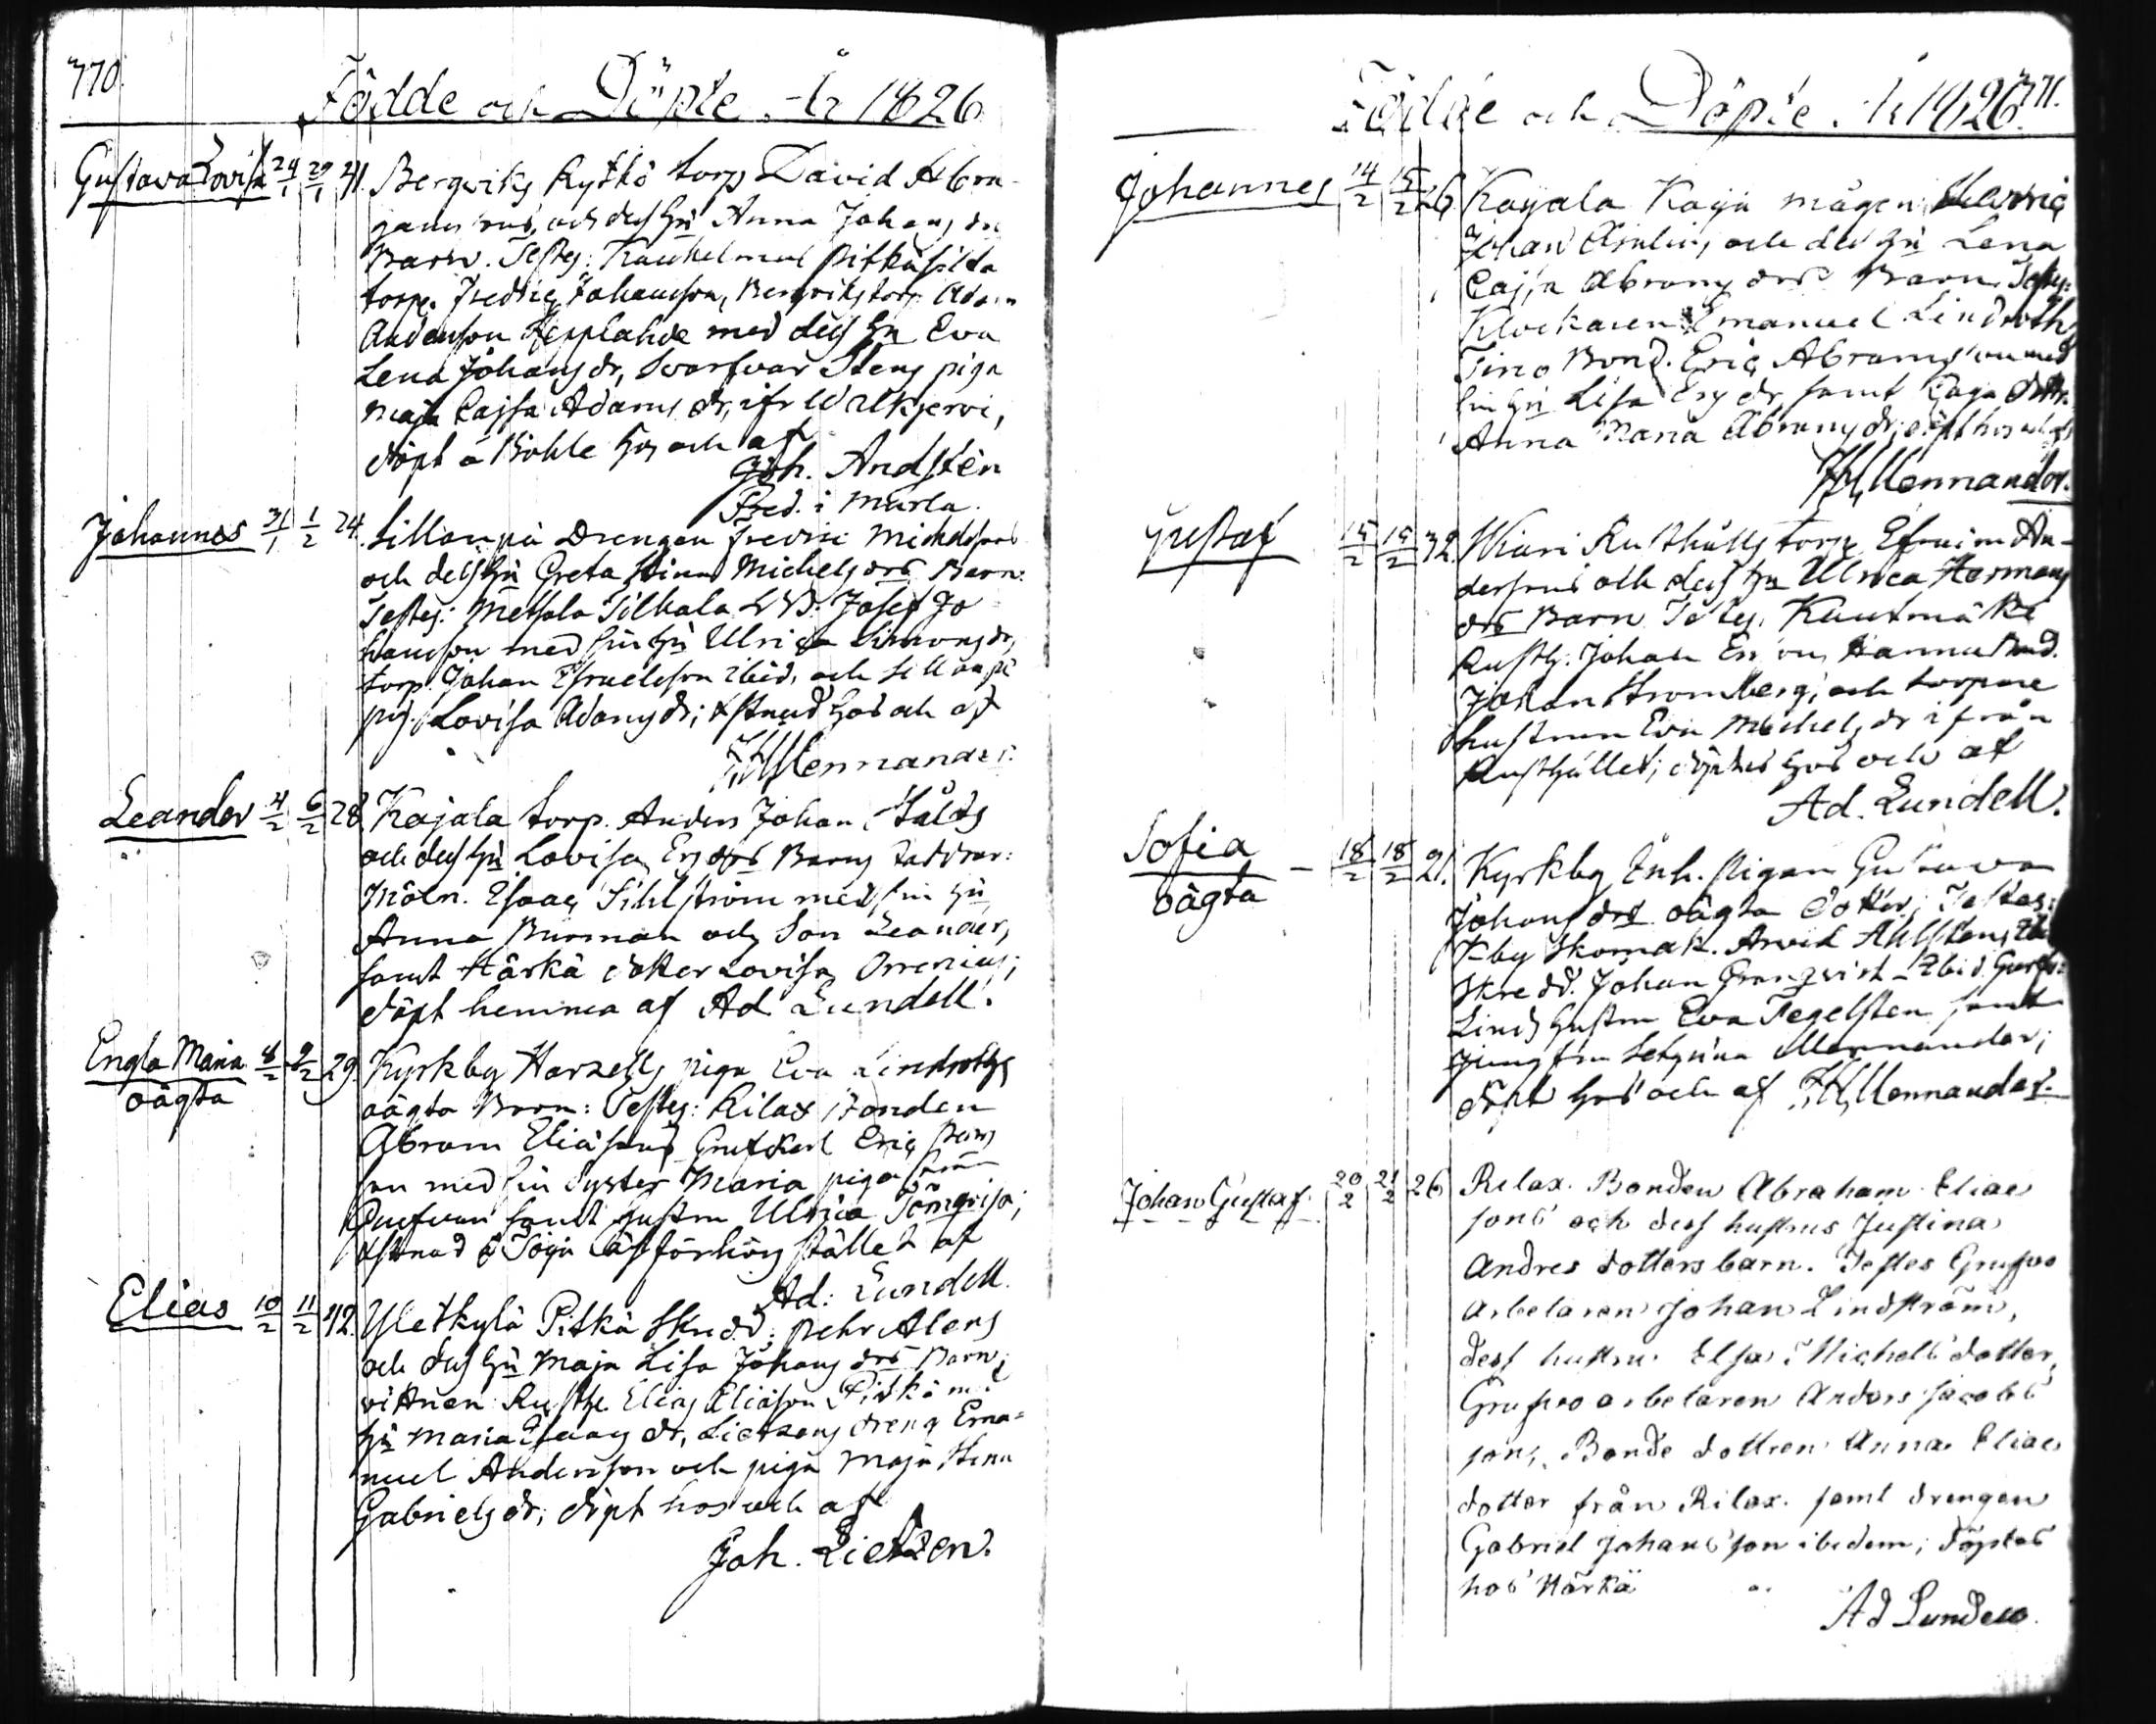 770.
Födde och Döpte År 1826
Gustava Lovisa 24/1 29/1 41. Bergviks Ryökö torp David Abra-
hams sons och dess hu Anna Johans drs
Barn. Testes:
torp. Fredric Johansson, Bergviks torp. Adam
Andersson Lepplahde med dess hu Eva
Lena Johans dr, Svarfvar Stens piga
Maja Cajsa Adams dr, ifr
döpt å Böhle hos och af
Joh. Andstén
Pred. i Muurla.
Johannes 31/1 1/2 24. Sillanpä Drengen Fredric Michelssons
och dess hu Greta Stina Michels drs Barn.
Testes: Metsola Silkala Josef Jo
hansson med sin hu Ulrica Simons dr,
torp. Johan Israelsson ibid. och Sillanpä
pig. Lovisa Adams dr; xstnad hos och af
F.H. Mennander.
Leander 4/2 6/2 28 Kajala torp. Anders Johan Ståls
och dess hu Lovisa Ers drs Barns Faddrar:
Möln. Isaac Sihlström med sin hu
Anna Burman och Son Leander,
samt Härkä dotter Lovisa Orrenius;
döpt hemma af Ad. Lundell.
Engla Maria 8/2 9/2 29. Kyrkby Harzells piga Eva Lindroths
oägta oägta Barn: Testes: Kilax Bonden
Abram Eliasson, Grufkarl Eric
son med sin Syster Maria piga
Grufvan samt hustru Ulrica
xstnad å Töija läsförhörs stället af
Ad: Lundell.
Elias 10/2 11/2 42. Yletkylä Pitkä Skredd. Pehr Alens
och dess hu Maja Lisa Johans drs Barn;
vittnen Rusth. Elias Eliasson Pitkä med
hu Maria Isaacs dr, Lietzens dreng Ema-
nuel Andersson och piga Maja Stina
Gabriels dr; döpt hos och af
Joh. Lietzen.
Födde och Döpte. År 1826. 771.
Johannes 14/2 15/2 26 Kajala Kaija mågen Henric
Johan och des hu Lena
Cajsa Abrams drs Barn. Testes:
Klockaren Emanuel Lindroth,
Tino Bond. Eric Abramsson med
sin hu Lisa Ers dr samt Kaija dottr.
Anna Maria Abrams dr; döpt hos och af
F.H. Mennander.
Gustaf 15/2 19/2 32. Wiari Rusthålls torp. Efraim An-
derssons och dess hu Ulrica Hermans
drs Barn Testes. Kuutmäki
Rusth. Johan Ersson, Hannu Bond.
Johan Stromberg, och torpare
hustrun Eva Michels dr ifrån
Rusthållet; döptes hos och af
Ad. Lundell.
Sofia 18/2 18/2 21. Kyrkby Inh. Pigan Gustawa
oägta Johans drs oägta dotter; Testes:
K-by Skomak. Arvid Ahlsten, Ibid
Skredd. Johan Granqvist, Ibid.
Linds hustru Eva Tegelsten samt
jungfru Mennander;
döpt hos och af F.H. Mennander.
Johan Gustaf. 20/2 21/2 26 Kilax. Bonden Abraham Elias
sons och dess hustrus Justina
Andres dotters barn. Testes Grufvo
arbetaren Johan Lindström,
dess hustru Elsa Michels dotter,
Grufvo arbetaren Anders Jacobs
son, Bonde dottren Anna Elias
dotter från Kilax. samt drengen
Gabriel Johansson ibidem; döptes
hos Härkä af
Ad Lundell.